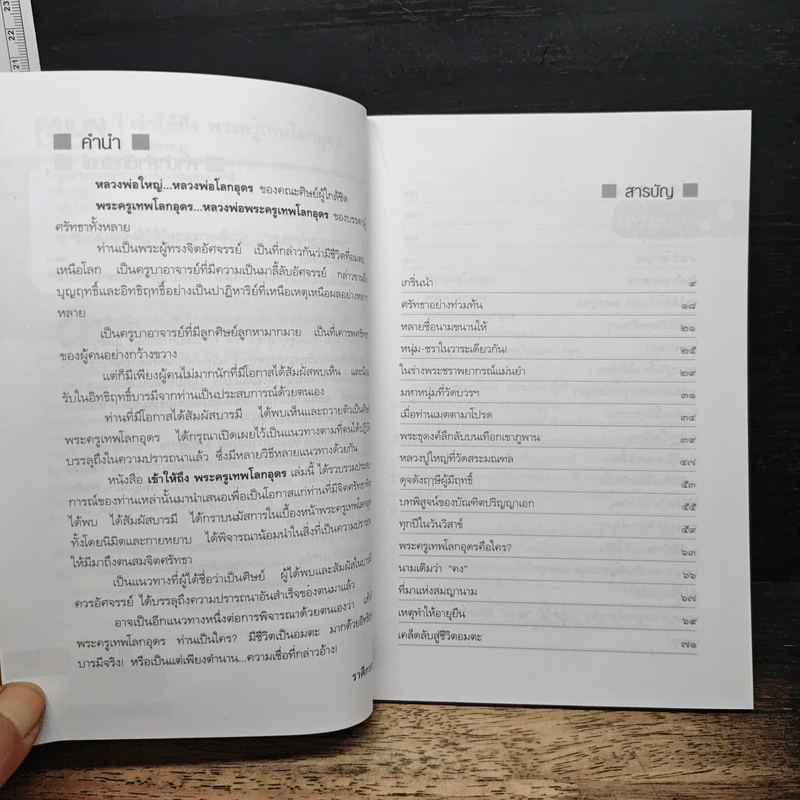 23
22
21
คำนำ
หลวงพ่อใหญ่...หลวงพ่อโลกอุดร ของคณะศิษย์ผู้ใกล้ชิด
พระครูเทพโลกอุดร...หลวงพ่อพระครูเทพโลกอุดร ของบรรดาผู้
ศรัทธาทั้งหลาย
ท่านเป็นพระผู้ทรงจิตอัศจรรย์ เป็นที่กล่าวกันว่ามีชีวิตที่อมตะ
เหนือโลก เป็นครูบาอาจารย์ที่มีความเป็นมาลี้ลับอัศจรรย์ กล่าวขานถึง
บุญฤทธิ์และอิทธิฤทธิ์อย่างเป็นปาฏิหาริย์ที่เหนือเหตุเหนือผลอย่างหลาก
หลาย
เป็นครูบาอาจารย์ที่มีลูกศิษย์ลูกหามากมาย เป็นที่เคารพศรัทธา
ของผู้คนอย่างกว้างขวาง
แต่ก็มีเพียงผู้คนไม่มากนักที่มีโอกาสได้สัมผัสพบเห็น และน้อม
รับในอิทธิฤทธิ์บารมีจากท่านเป็นประสบการณ์ด้วยตนเอง
ท่านที่มีโอกาสได้สัมผัสบารมี ได้พบเห็นและถวายตัวเป็นศิษย์
พระครูเทพโลกอุดร ได้กรุณาเปิดเผยไว้เป็นแนวทางตามที่ตนได้ปฏิบัติ
บรรลุถึงในความปรารถนาแล้ว ซึ่งมีหลายวิธีหลายแนวทางด้วยกัน
หนังสือ เข้าให้ถึง พระครูเทพโลกอุดร เล่มนี้ ได้รวบรวมประสบ
การณ์ของท่านเหล่านั้นมานำเสนอเพื่อเป็นโอกาสแก่ท่านที่มีจิตศรัทธา
ได้พบ ได้สัมผัสบารมี ได้กราบนมัสการในเบื้องหน้าพระครูเทพโลกอุดร
ทั้งโดยนิมิตและกายหยาบ ได้พิจารณาน้อมนำในสิ่งที่เป็นความปรารถนา
ให้มีมาถึงตนสมจิตศรัทธา
เป็นแนวทางที่ผู้ได้ชื่อว่าเป็นศิษย์ ผู้ได้พบและสัมผัสในบารมี
ควรอัศจรรย์ ได้บรรลุถึงความปรารถนาอันสำเร็จของตนมาแล้ว
อาจเป็นอีกแนวทางหนึ่งต่อการพิจารณาด้วยตนเองว่า
พระครูเทพโลกอุดร ท่านเป็นใคร? มีชีวิตเป็นอมตะ มากด้วยอิทธิ
บารมีจริง! หรือเป็นแต่เพียงตำนาน...ความเชื่อที่กล่าวอ้าง!
สารบัญ
เกริ่นนำ ๙
ศรัทธาอย่างท่วมท้น ๑๘
หลายชื่อนามขนานให้ ๒๑
หนุ่ม-ชราในวาระเดียวกัน! ๒๕
ในร่างพระชราพยากรณ์แม่นยำ ๒๙
มหาหนุ่มที่วัดบวรฯ ๓๑
เมื่อท่านเมตตามาโปรด ๓๔
พระธุดงค์ลึกลับบนเทือกเขาภูพาน ๓๙
หลวงปู่ใหญ่ที่วัดสระมณฑล ๔๗
ดุจดังฤาษีผู้มีฤทธิ์ ๕๓
บทพิสูจน์ของบัณฑิตปริญญาเอก ๕๕
ทุกปีในวันวิสาข์ ๕๙
พระครูเทพโลกอุดรคือใคร? ๖๓
นามเดิมว่า "คง" ๖๖
ที่มาแห่งสมญานาม ๖๗
เหตุทำให้อายุยืน ๖๙
เคล็ดลับสู่ชีวิตอมตะ ๗๑